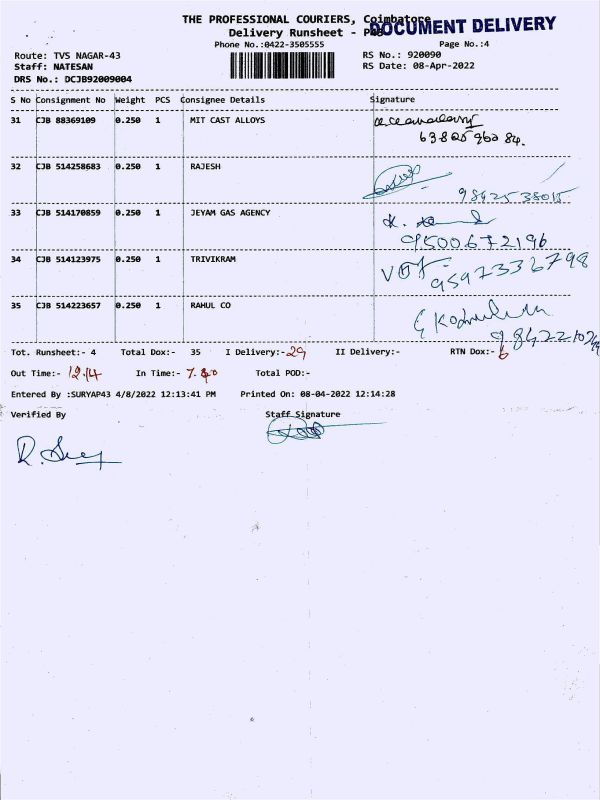 THE PROFESSIONAL COURIERS, Coimbatore
DOCUMENT DELIVERY
Delivery Runsheet - P43
Phone No.:0422-3505555 Page No.:4
Route: TVS NAGAR-43 RS No.: 920090
Staff: NATESAN RS Date: 08-Apr-2022
DRS No.: DCJB92009004
S No Consignment No Weight PCS Consignee Details Signature
31 CJB 88369109 0.250 1 MIT CAST ALLOYS
32 CJB 514258683 0.250 1 RAJESH
9842538015
33 CJB 514170859 0.250 1 JEYAM GAS AGENCY
9500672196
34 CJB 514123975 0.250 1 TRIVIKRAM
9597336798
35 CJB 514223657 0.250 1 RAHUL CO
Tot. Runsheet:- 4 Total Dox:- 35 I Delivery:- 29 II Delivery:- RTN Dox:- 6
Out Time:- 12.14 In Time:- Total POD:-
Entered By :SURYAP43 4/8/2022 12:13:41 PM Printed On: 08-04-2022 12:14:28
Verified By Staff Signature